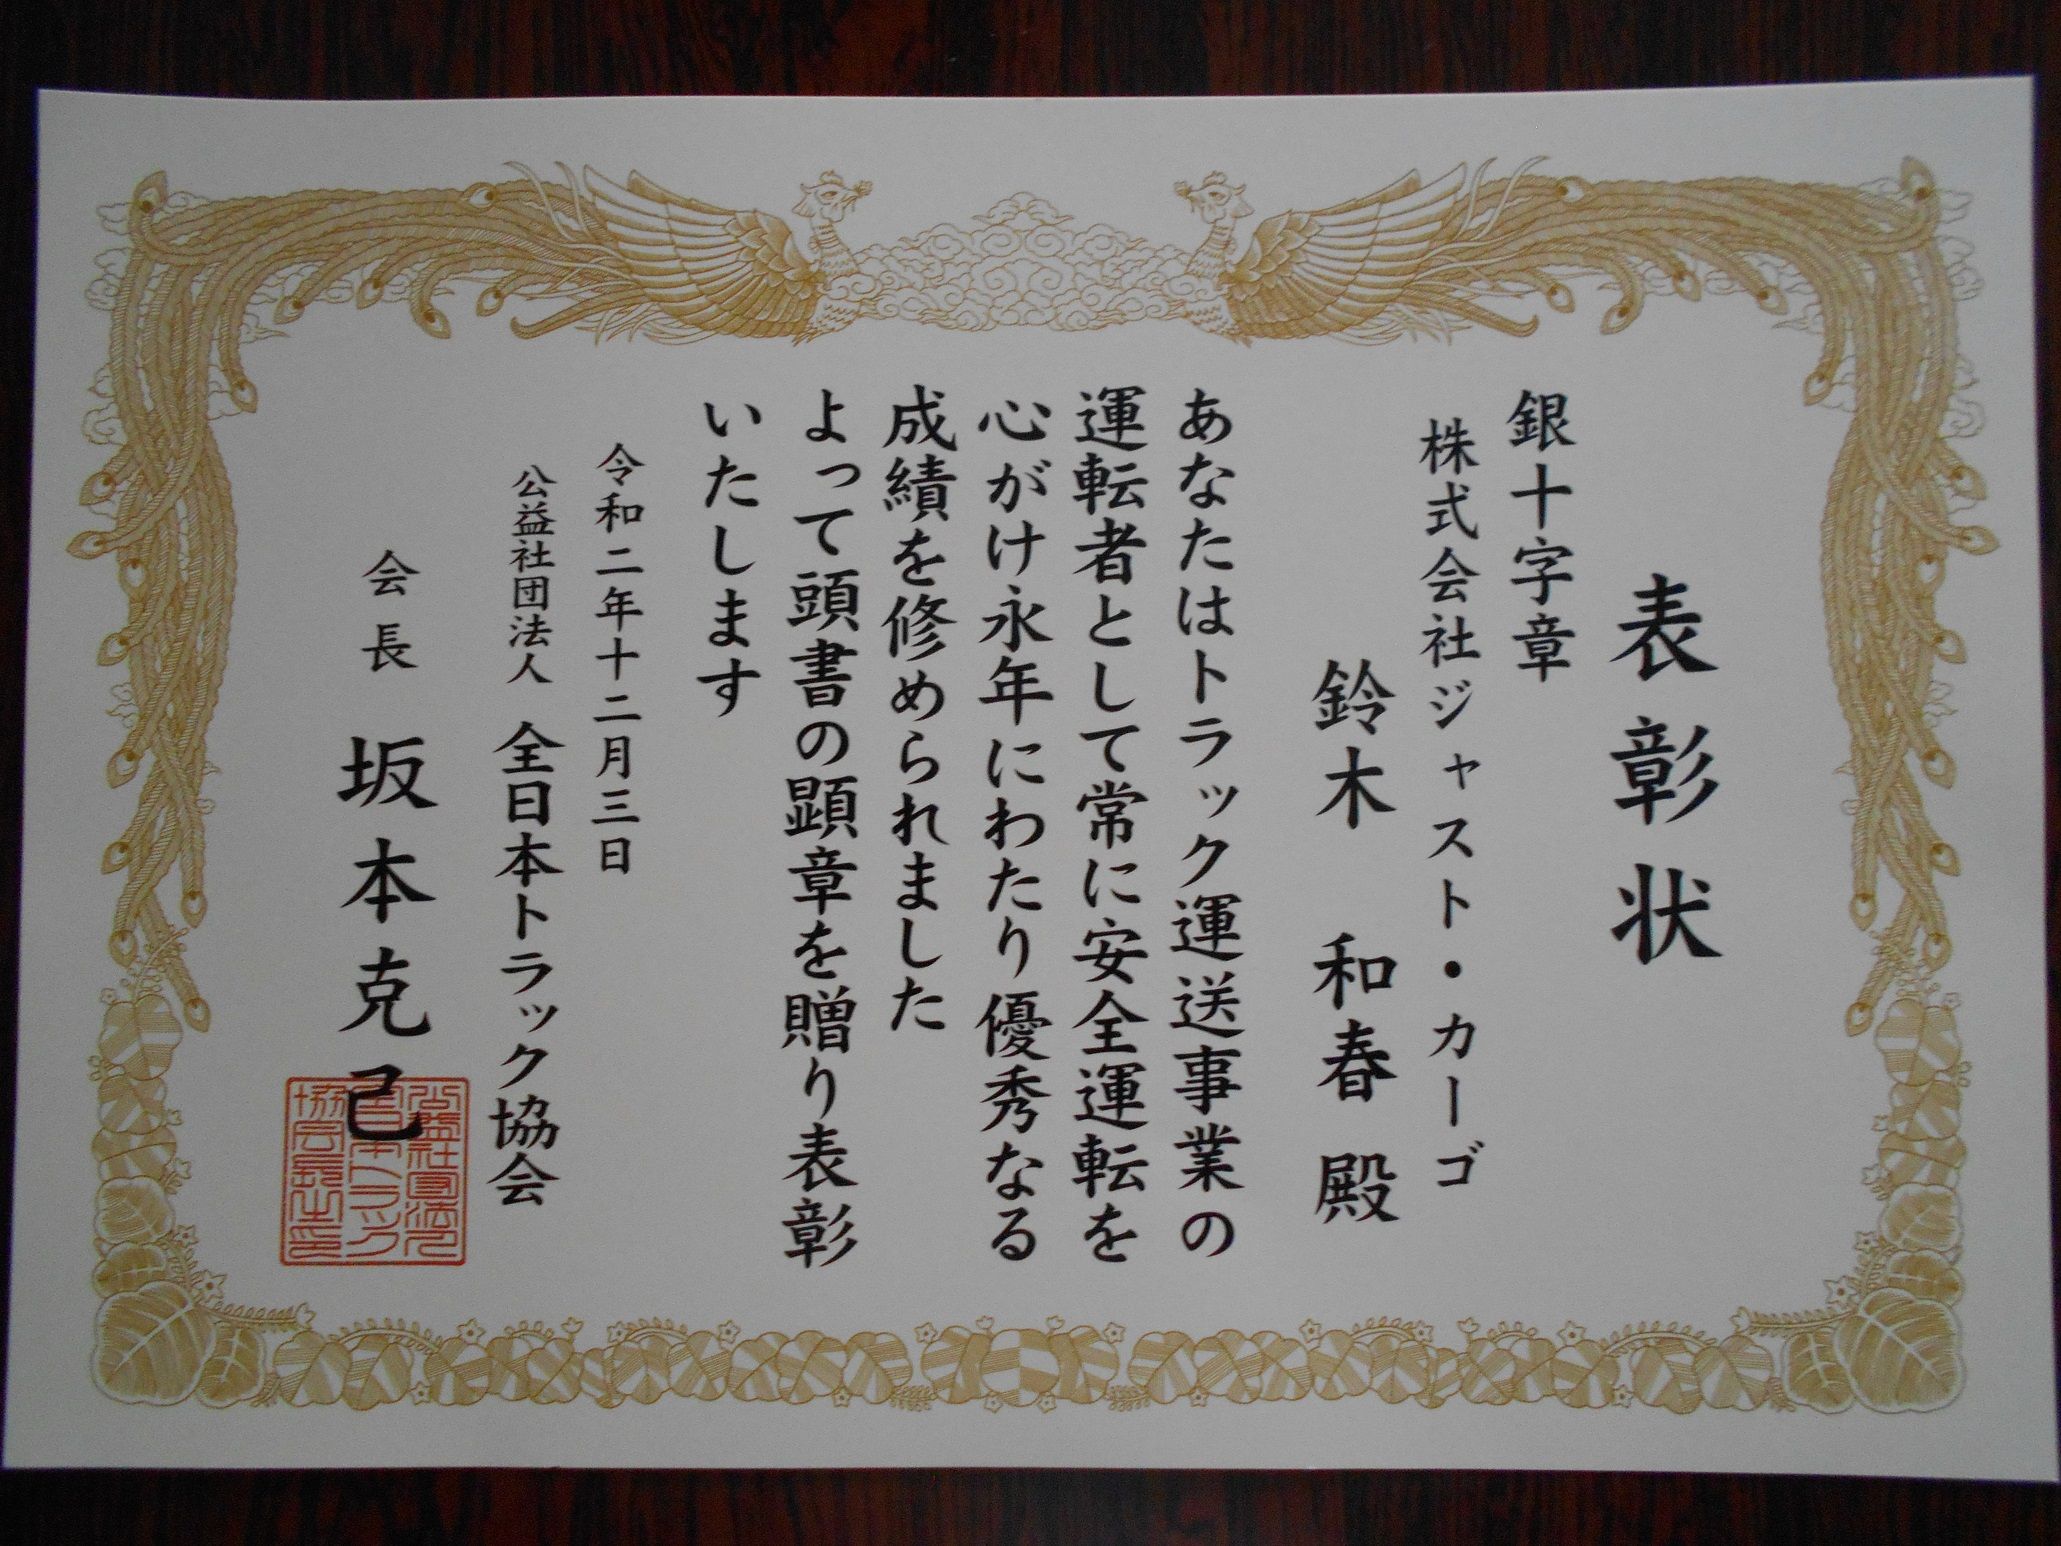 表彰状
銀十字章
株式会社ジャスト・カーゴ
鈴木 和春 殿
あなたはトラック運送事業の
運転者として常に安全運転を
心がけ永年にわたり優秀なる
成績を修められました
よって頭書の顕章を贈り表彰
いたします
令和二年十二月三日
公益社団法人 全日本トラック協会
会長 坂本克己
公益社団法人
全日本トラック
協会長之印